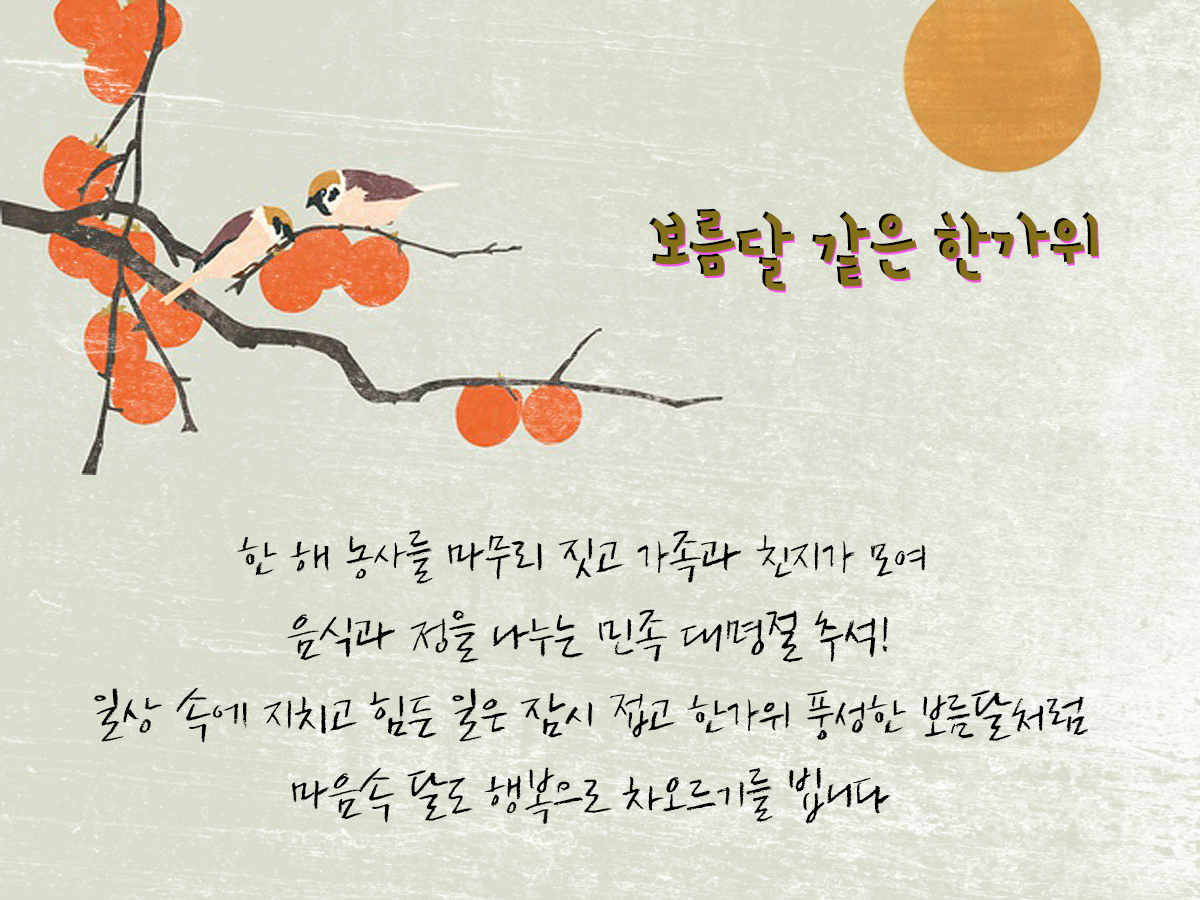 보름달 같은 한가위
한 해 농사를 마무리 짓고 가족과 친지가 모여
음식과 정을 나누는 민족 대명절 추석!
일상 속에 지치고 힘든 일은 잠시 접고 한가위 풍성한 보름달처럼
마음속 달도 행복으로 차오르기를 빕니다